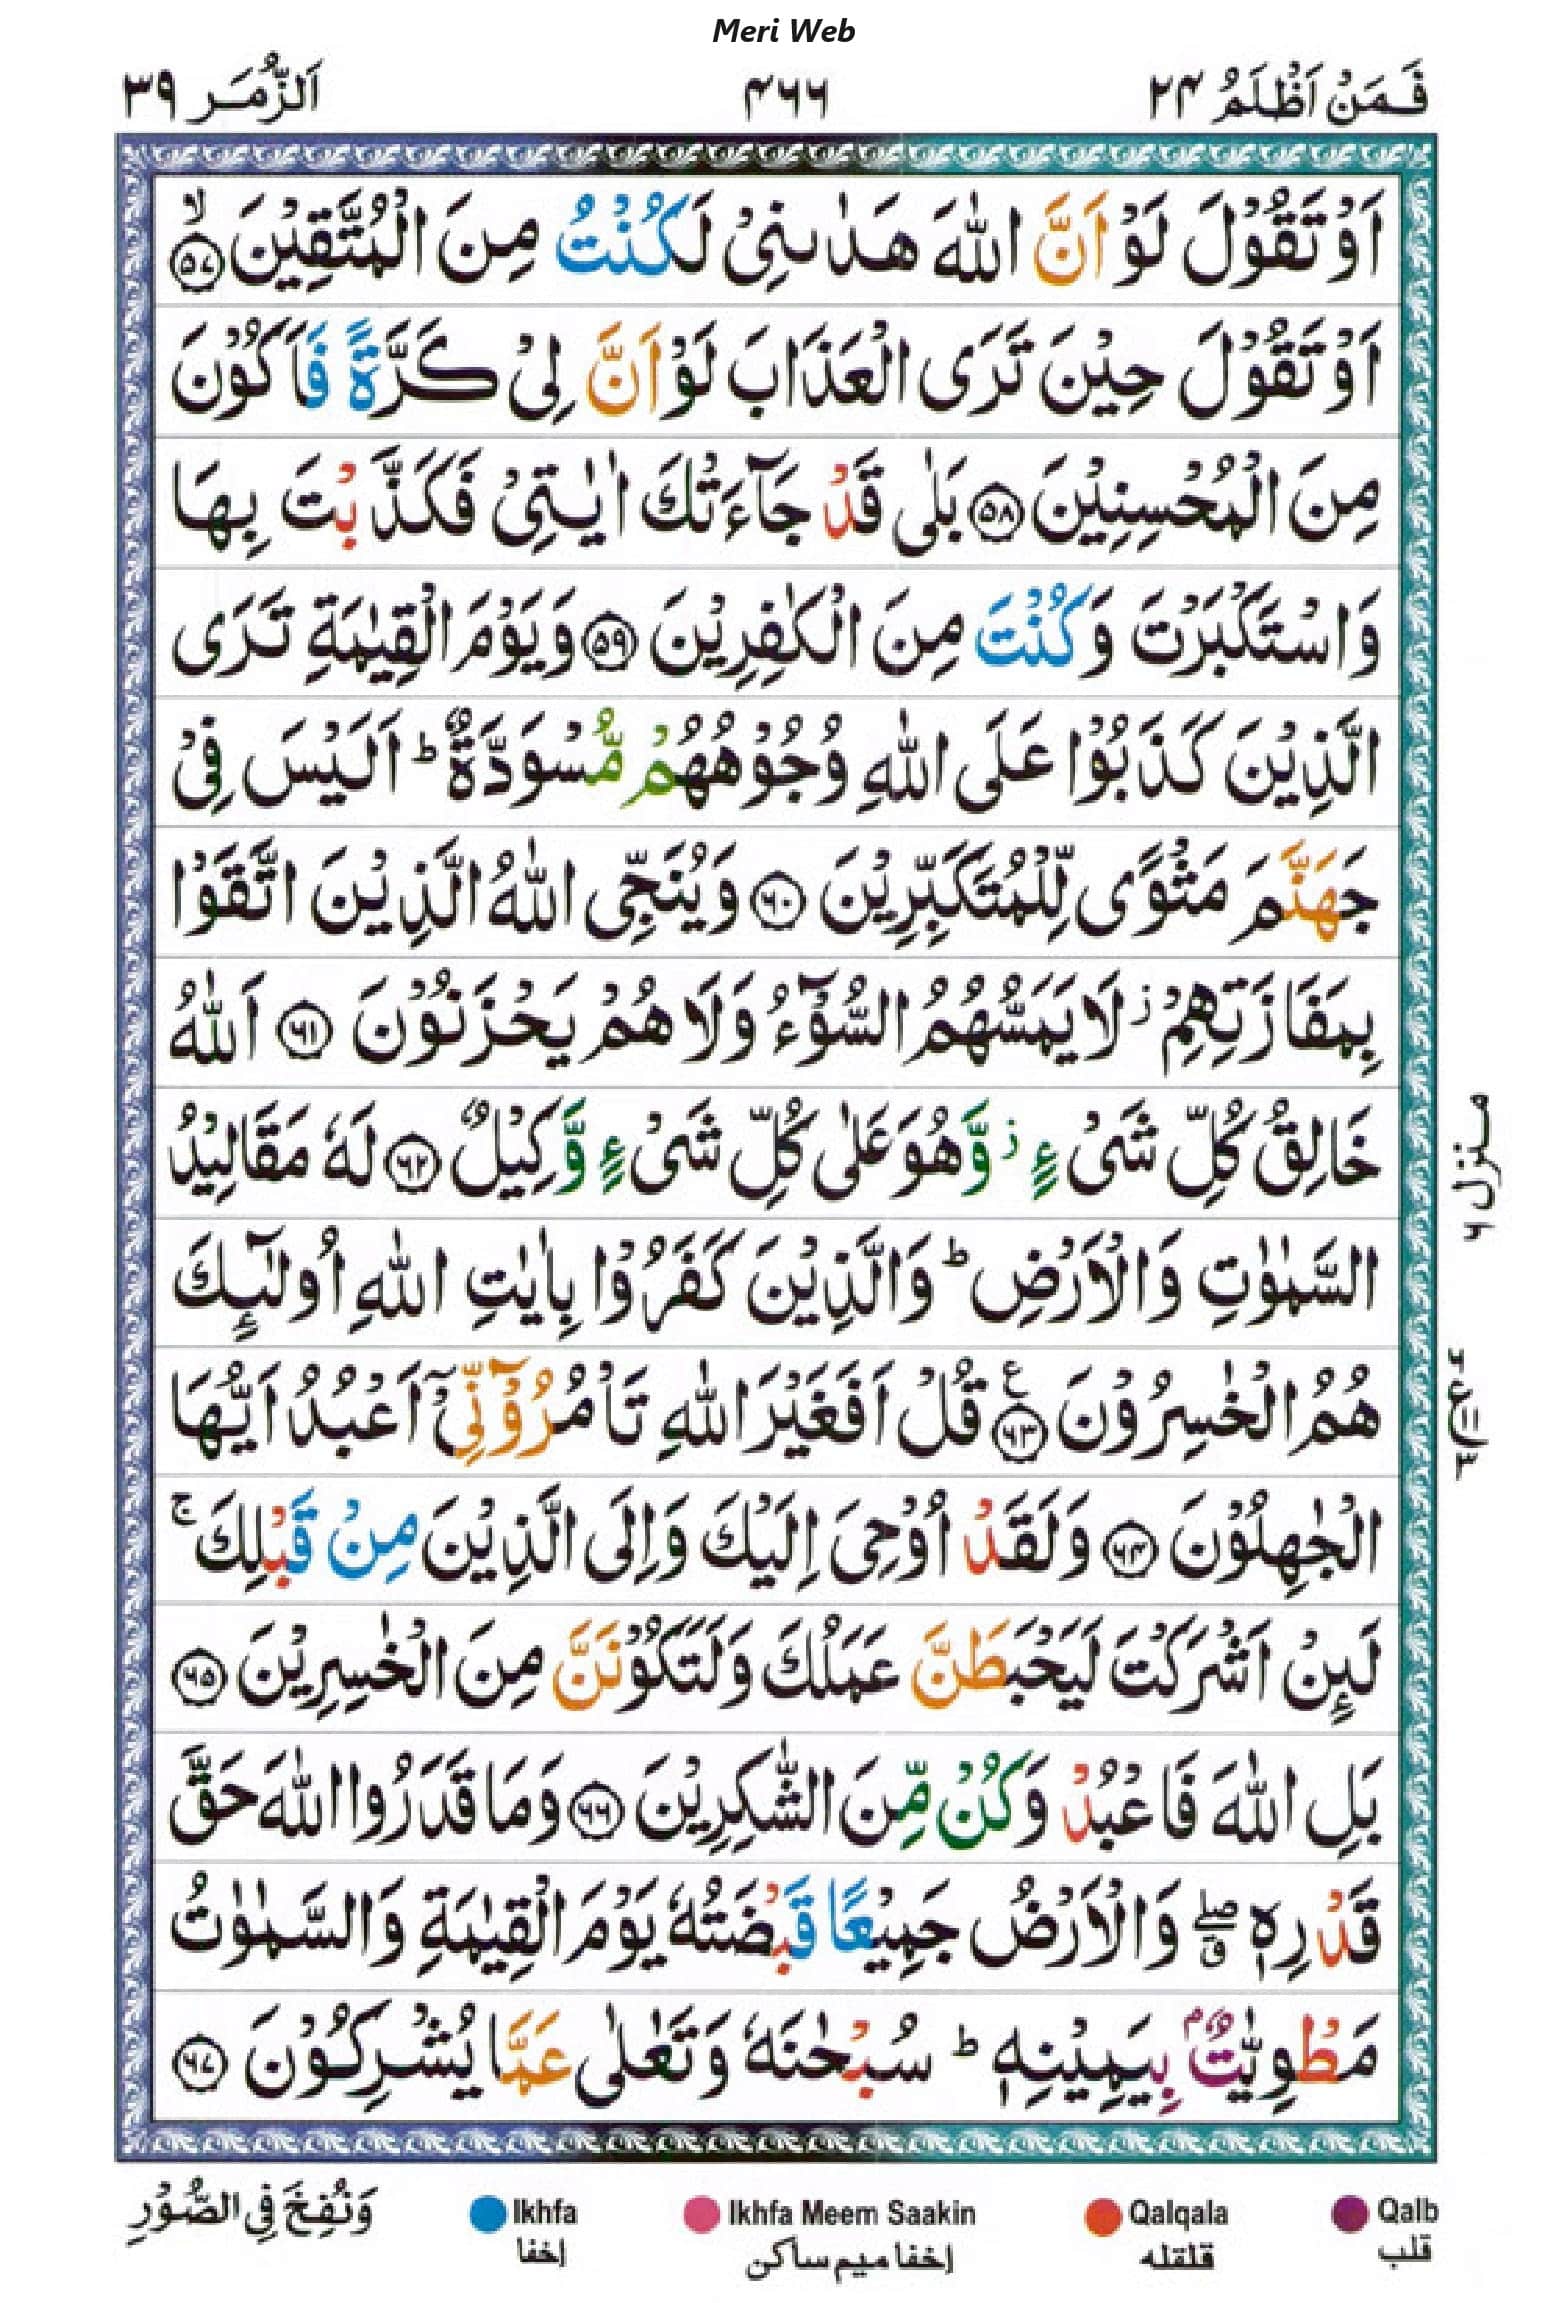 Meri Web
فَمَنْ اَظْلَمُ ٢٤ ٤٦٦ اَلزُّمَر ٣٩
اَوْ تَقُوْلَ لَوْ اَنَّ اللّٰهَ هَدٰىنِیْ لَكُنْتُ مِنَ الْمُتَّقِیْنَ ۙ‏﴿۵۷﴾
اَوْ تَقُوْلَ حِیْنَ تَرَی الْعَذَابَ لَوْ اَنَّ لِیْ كَرَّةً فَاَكُوْنَ
مِنَ الْمُحْسِنِیْنَ ﴿۵۸﴾ بَلٰی قَدْ جَآءَتْكَ اٰیٰتِیْ فَكَذَّبْتَ بِهَا
وَاسْتَكْبَرْتَ وَكُنْتَ مِنَ الْكٰفِرِیْنَ ﴿۵۹﴾ وَیَوْمَ الْقِیٰمَةِ تَرَی
الَّذِیْنَ كَذَبُوْا عَلَی اللّٰهِ وُجُوْهُهُمْ مُّسْوَدَّةٌ ؕ اَلَیْسَ فِیْ
جَهَنَّمَ مَثْوًی لِّلْمُتَكَبِّرِیْنَ ﴿۶۰﴾ وَیُنَجِّی اللّٰهُ الَّذِیْنَ اتَّقَوْا
بِمَفَازَتِهِمْ ؗ لَا یَمَسُّهُمُ السُّوْٓءُ وَلَا هُمْ یَحْزَنُوْنَ ﴿۶۱﴾ اَللّٰهُ
خَالِقُ كُلِّ شَیْءٍ ؗ وَّهُوَ عَلٰی كُلِّ شَیْءٍ وَّكِیْلٌ ﴿۶۲﴾ لَهٗ مَقَالِیْدُ
السَّمٰوٰتِ وَالْاَرْضِ ؕ وَالَّذِیْنَ كَفَرُوْا بِاٰیٰتِ اللّٰهِ اُولٰٓىِٕكَ
هُمُ الْخٰسِرُوْنَ ﴿۶۳﴾ ع قُلْ اَفَغَیْرَ اللّٰهِ تَاْمُرُوْٓنِّیْۤ اَعْبُدُ اَیُّهَا
الْجٰهِلُوْنَ ﴿۶۴﴾ وَلَقَدْ اُوْحِیَ اِلَیْكَ وَاِلَی الَّذِیْنَ مِنْ قَبْلِكَ ۚ
لَىِٕنْ اَشْرَكْتَ لَیَحْبَطَنَّ عَمَلُكَ وَلَتَكُوْنَنَّ مِنَ الْخٰسِرِیْنَ ﴿۶۵﴾
بَلِ اللّٰهَ فَاعْبُدْ وَكُنْ مِّنَ الشّٰكِرِیْنَ ﴿۶۶﴾ وَمَا قَدَرُوا اللّٰهَ حَقَّ
قَدْرِهٖ ۖق وَالْاَرْضُ جَمِیْعًا قَبْضَتُهٗ یَوْمَ الْقِیٰمَةِ وَالسَّمٰوٰتُ
مَطْوِیّٰتٌۢ بِیَمِیْنِهٖ ؕ سُبْحٰنَهٗ وَتَعٰلٰی عَمَّا یُشْرِكُوْنَ ﴿۶۷﴾
منزل ۶
ع ۳
وَنُفِخَ فِی الصُّوْرِ
Ikhfa
إخفا
Ikhfa Meem Saakin
إخفا میم ساکن
Qalqala
قلقله
Qalb
قلب